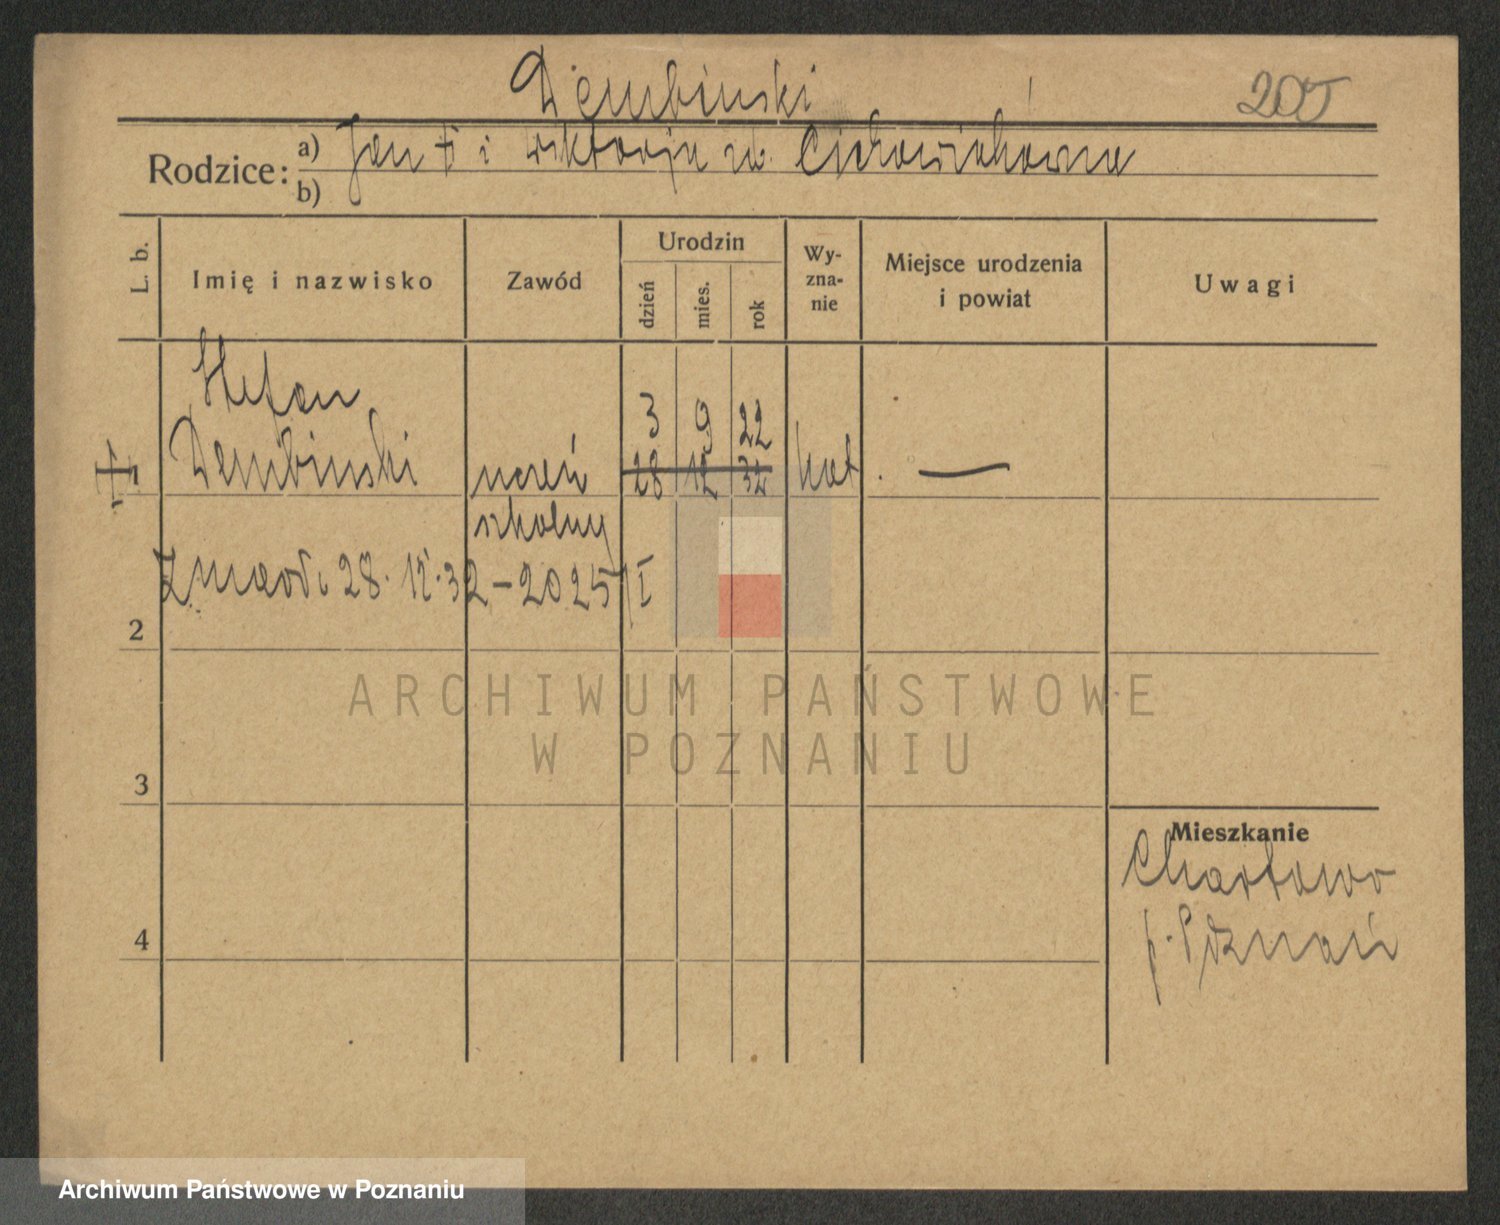 Dembinski
205
Rodzice: a) Jan † i Wiktorja ur. Cichowiakówna
b)
L. b.
Imię i nazwisko
Zawód
Urodzin
dzień
mies.
rok
Wy-
zna-
nie
Miejsce urodzenia
i powiat
Uwagi
Stefan
3 9 22
Dembinski uczeń 28 12 32 kat. —
szkolny
Zmarł 28.12.32 – 2025/I
2
ARCHIWUM PAŃSTWOWE
W POZNANIU
3
Mieszkanie
Chartowo
p. Poznań
4
Archiwum Państwowe w Poznaniu